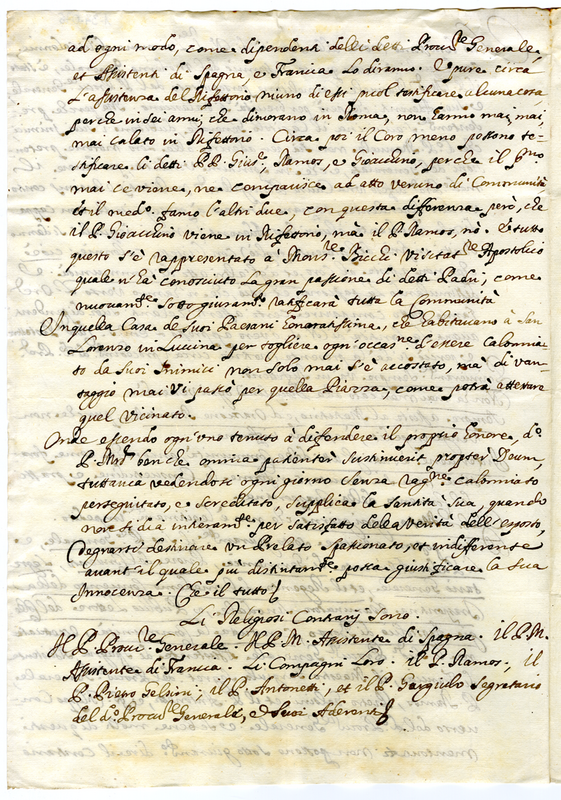 ad ogni modo, come dipendenti delli detti Procu.re Generale,
et Assistenti di Spagna, e Francia Lo diranno. E pure circa
L'assistenza del Rifettorio niuno di essi puol testificare alcuna cosa,
perche in sei anni, che dimorano in Roma, non hanno mai, mai,
mai calato in Rifettorio. Circa poi il Coro meno possono te-
stificare li detti PP. Ramos, e Gioacchino, perche il p.mo
mai ce viene, ne comparisce ad atto veruno di Communità
et il med.o fanno l'altri due, con questa differenza però, che
il P. Gioacchino viene in Rifettorio, mà il P. Ramos, nò. E tutto
questo s'è rappresentato à Mons.re Ricci Visitat.re Apostolico
quale n'hà conosciuto La gran passione di detti Padri, come
nuovam.te sotto giuram.to ratificarà tutta la Communità
In quella Casa de Suoi Paesani honoratissima, che habitavano à San
Lorenzo in Luccina per togliere ogni occas.ne d'essere calomnia-
to da Suoi Inimici non solo mai s'è accostato, mà di van-
taggio mai vi passò per quella Piazza, come potrà attestare
quel vicinato.
Onde essendo ogn'uno tenuto à difendere il proprio honore, d.o
P. benche omnia patienter sustinuerit propter Deum,
tuttavia vedendosi ogni giorno senza rag.ne calomniato
perseguitato, e screditato, supplica la Santità Sua, quando
non si dia interam.te per satisfatto della verità dell'esposto,
degnarsi destinare un Prelato spassionato, et indifferente
avant'il quale più distintam.te possa giustificare la sua
Innocenza. Che il tutto
Li Religiosi Contrarij Sono
Il P. Procu.re Generale. Il P. M. Assistente di Spagna. il P. M.
Assistente di Francia. Li Compagni Loro. il P. Ramos, il
P. Pietro il P. Antonetti, et il P. Gargiulo Segretario
del d.o Procu.re Generale, e Suoi Aderenti.